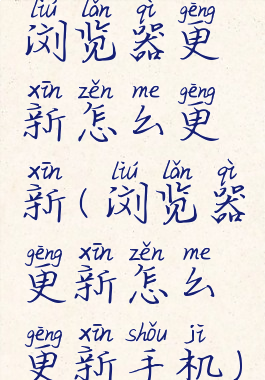 liú lǎn qì gēng
浏览器更
xīn zěn me gēng
新怎么更
xīn liú lǎn qì
新(浏览器
gēng xīn zěn me
更新怎么
gēng xīn shǒu jī
更新手机)